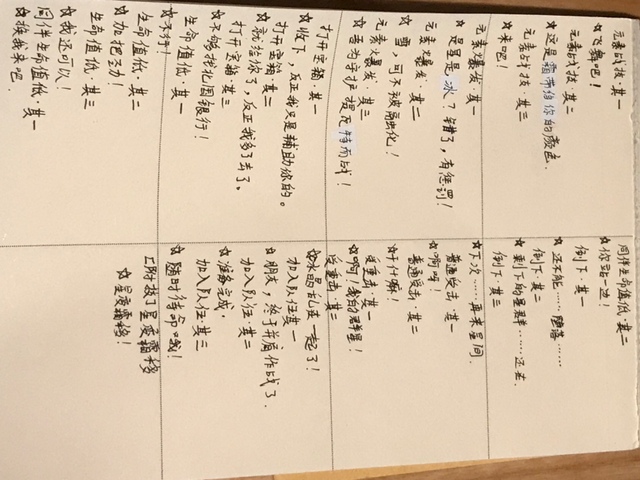 元素战技·其一
☆飞舞吧！
元素战技·其二
☆这是霜布给你的颜色.
元素战技·其三
☆来吧！
元素爆发·其一
☆是星是冰？错了，有惩罚！
元素爆发·其二
☆雪，可不被融化！
元素爆发·其三
☆吾为守护提瓦特而战！
打开宝箱·其一
☆收下，反正我只是辅助你的。
打开宝箱·其二
☆就给你了，反正我多了去了。
打开宝箱·其三
☆不够我北国银行！
生命值低·其一
☆不行！
生命值低·其二
☆加把劲！
生命值低·其三
☆我还可以！
同伴生命值低·其一
☆换我来吧.
同伴生命值低·其二
☆你站一边！
倒下·其一
☆还不能……堕落
倒下·其二
☆剩下的星群……还在.
倒下·其三
☆下次……再来星间.
普通受击·其一
☆啊呀！
普通受击·其二
☆干什嘛！
受重击·其一
☆啊！我的群星！
受重击·其二
☆冰晶乱在一起了！
加入队伍·其一
☆朋友，终于并肩作战了.
加入队伍·其二
☆准备完成.
加入队伍·其三
☆随时待命哦！
[附：技了星变霜移
☆星变霜移！